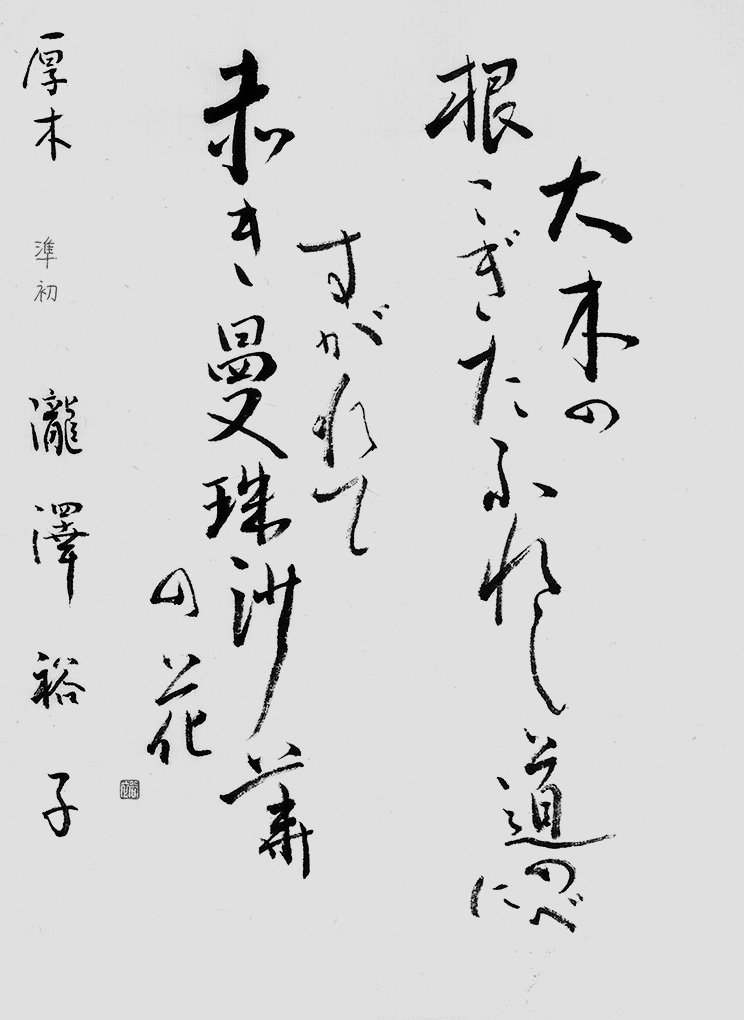 大木の
根こぎたふれし道のべに
すがれて
赤き曼珠沙華
の花
厚木 準初 瀧澤裕子